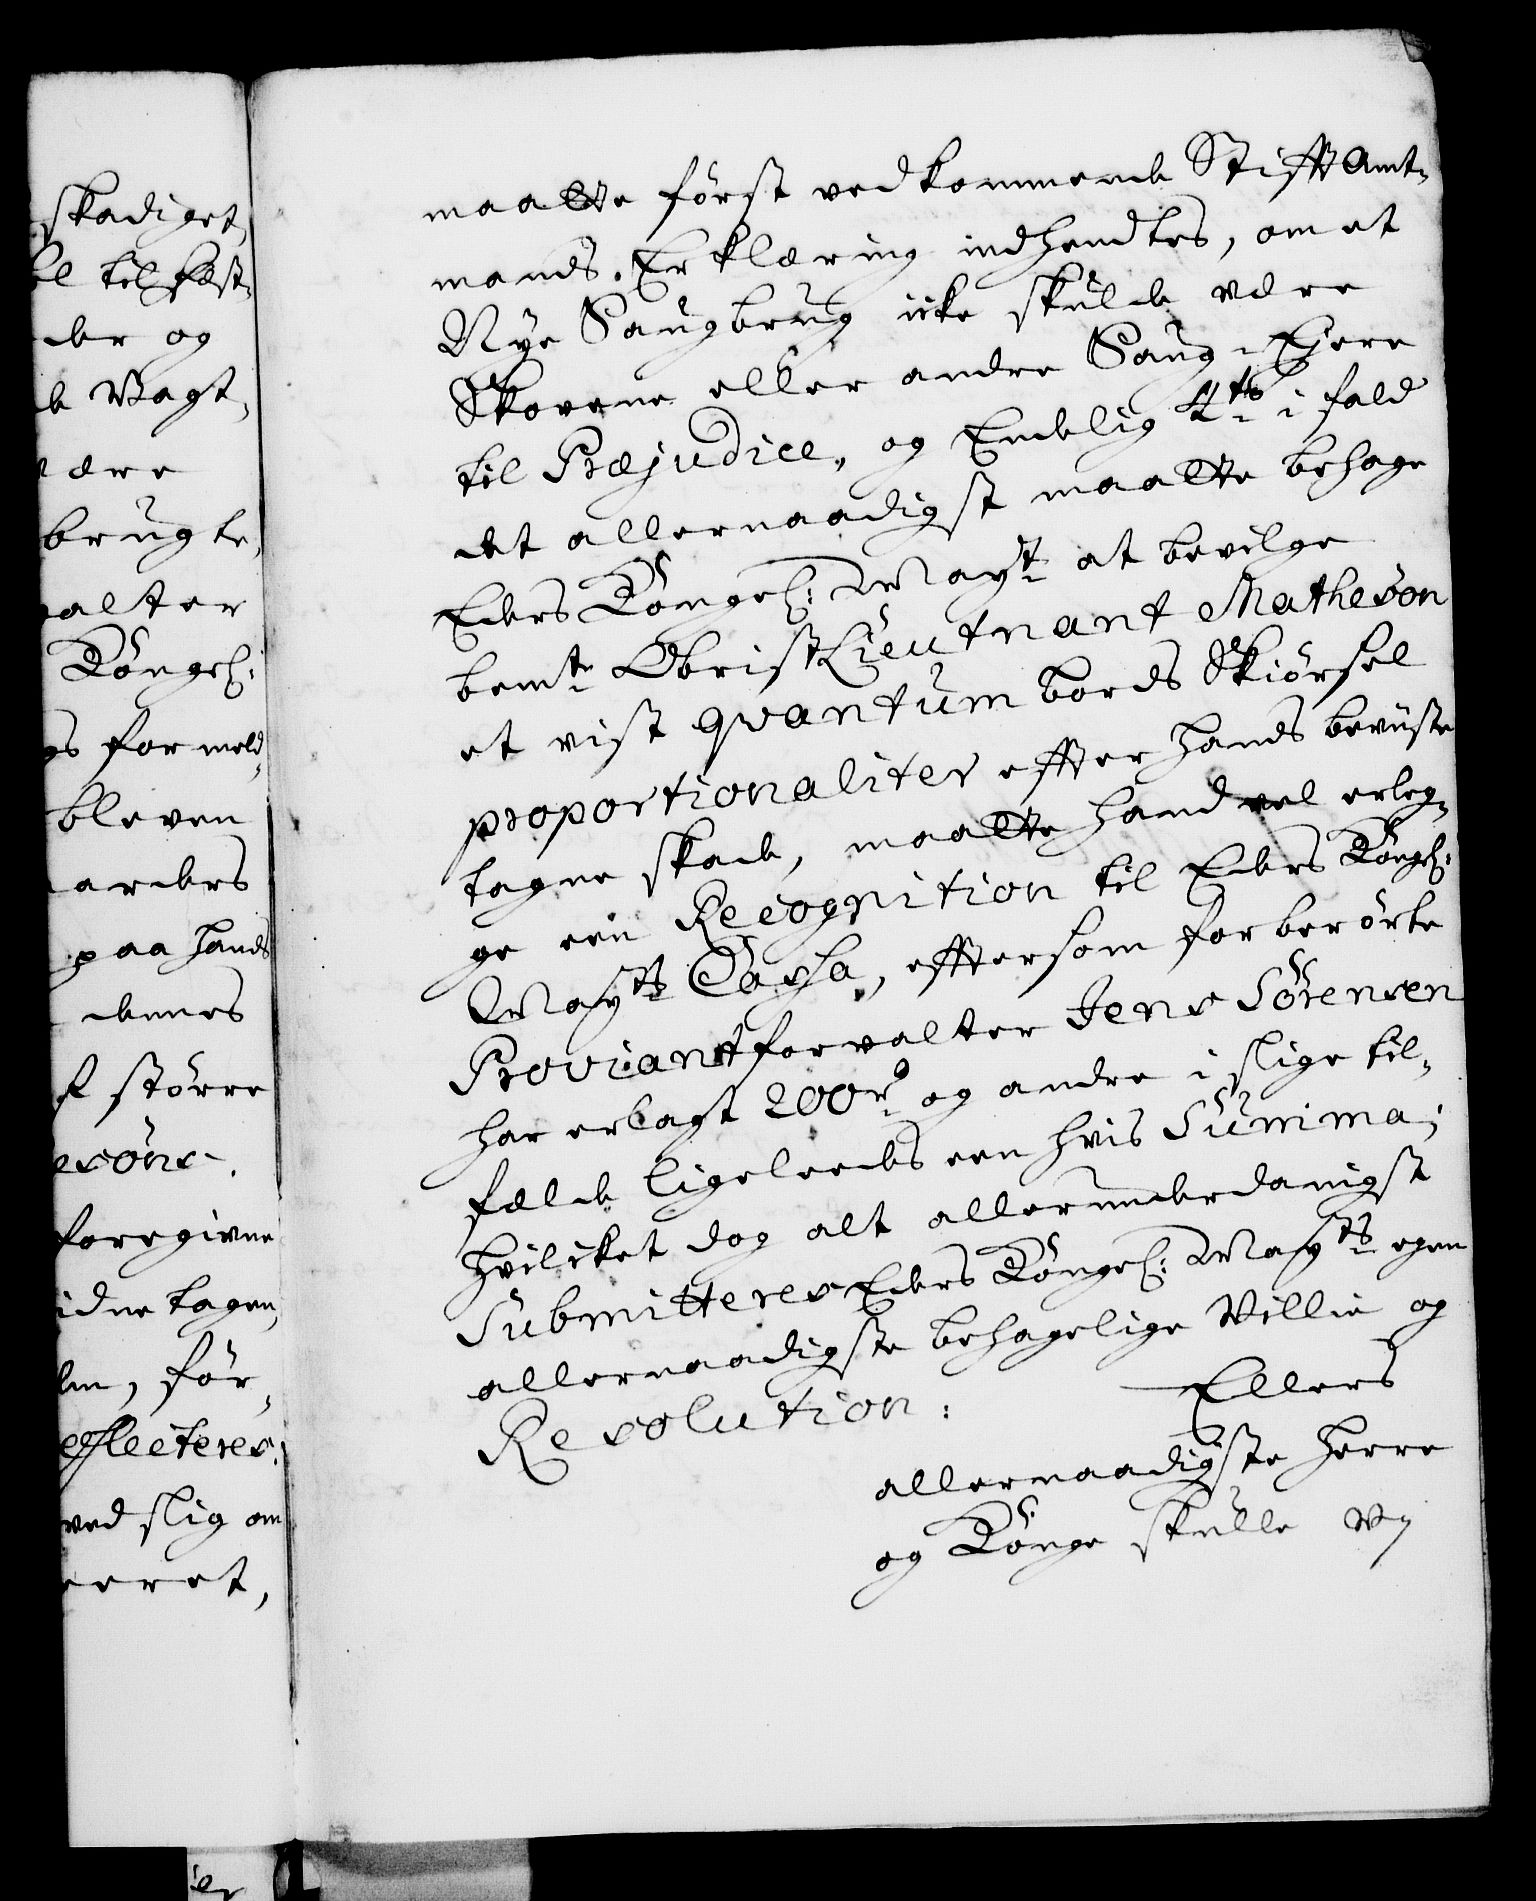 skadiget,
til fæst-
der og
Vagt,
ære
brugte,
alter
Kongel:
for meld-
bleven
arders
paa hands
dennes
større
esöns.
foregivne
idne tagen,
för-
eflecteres:
ved slig om
eret,
maatte först vedkommende Stifft Amt-
mands Erklæring indhendtes, om et
Nye Saugbrug icke skulde være
Skovene eller andre Saug-Ejere
til Præjudice, og Endelig 4de i fald
det allernaadigst maatte behage
Eders Kongel: Mayt at bevilge
bemte ObristLieutnant Matheson
et vist qvantum bords Skiörsel
proportionaliter effter hands bevüste
tagne skade, maatte hand vel erleg-
ge een Recognition til Eders Kongel:
Mayts Cassa, effttersom forberörte
Proviantforvalter Jens Sörensen
har erlagt 200 rd og andre i slige til-
fælde ligeleedes een hvis Summa;
hvilcket dog alt allerunderdanigst
Submitteres Eders Kongel: Mayts egen
allernaadigste behagelige Villie og
Resolution: Ellers
allernaadigste Herre
og Konge skulle Vj